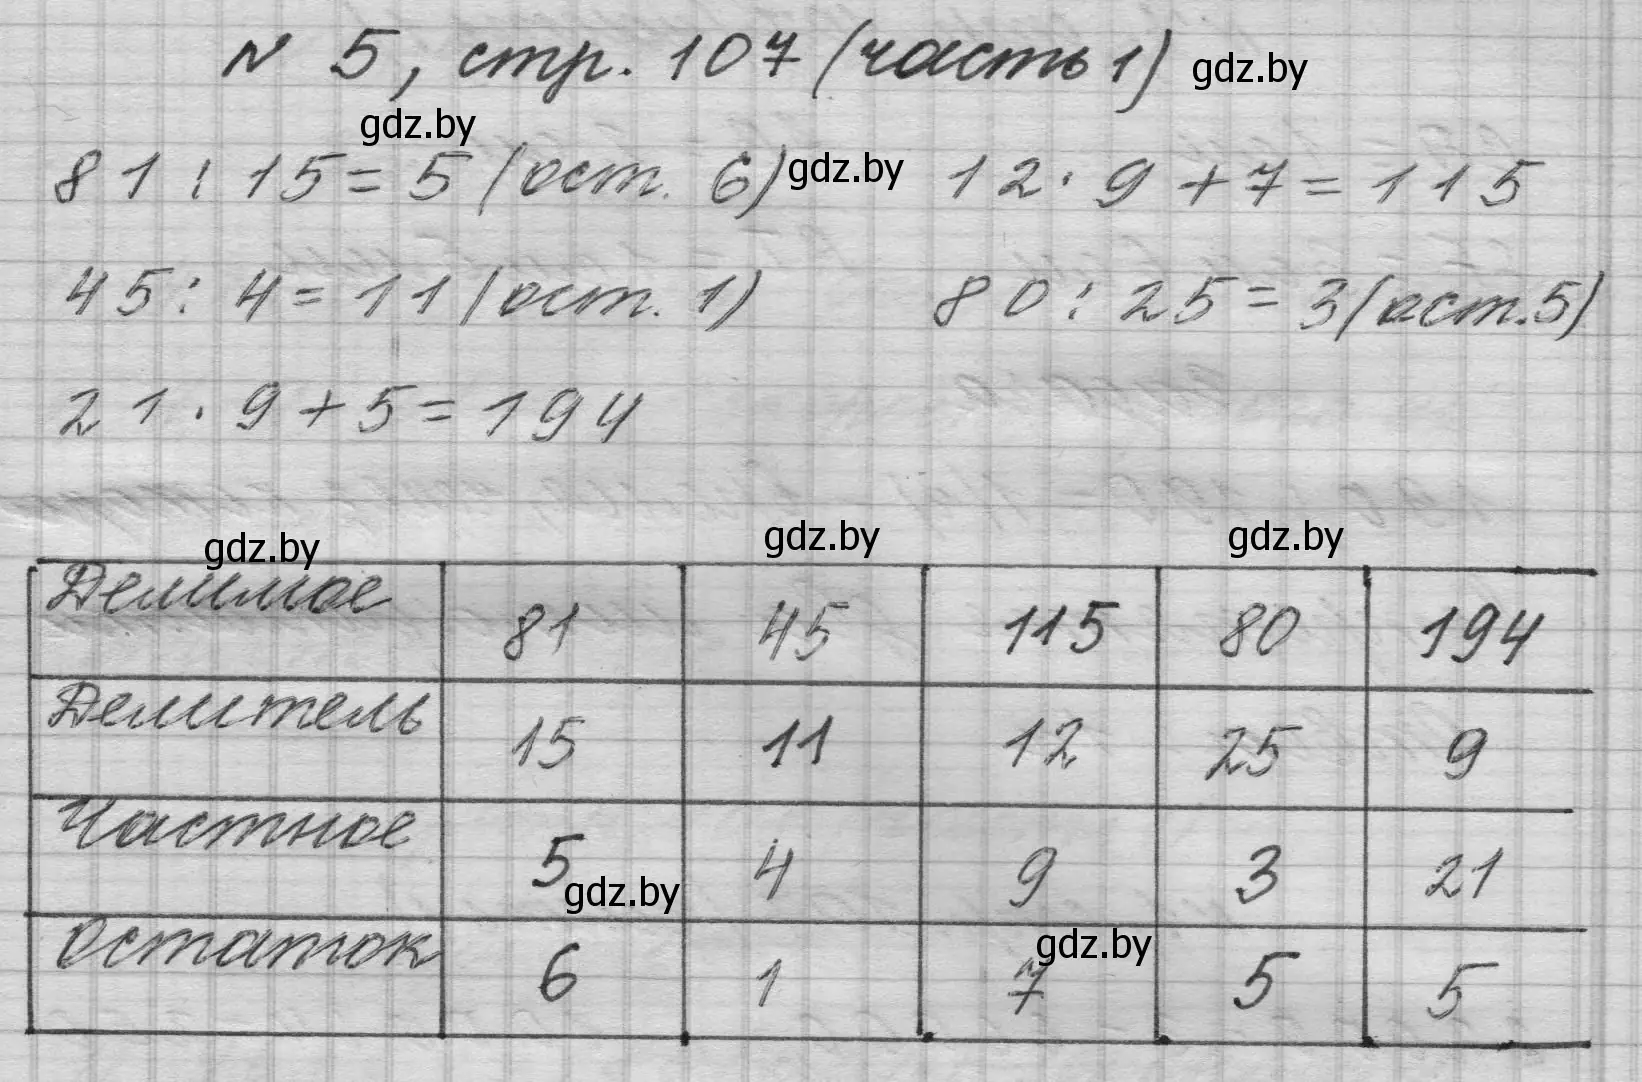 № 5, стр. 107 (часть 1) gdz.by
gdz.by
81 : 15 = 5 (ост. 6) gdz.by 12 · 9 + 7 = 115
45 : 4 = 11 (ост. 1) 80 : 25 = 3 (ост. 5)
21 · 9 + 5 = 194
gdz.by gdz.by gdz.by
Делимое 81 45 115 80 194
Делитель 15 11 12 25 9
Частное 5 4 9 3 21
gdz.by
gdz.by
Остаток 6 1 7 5 5